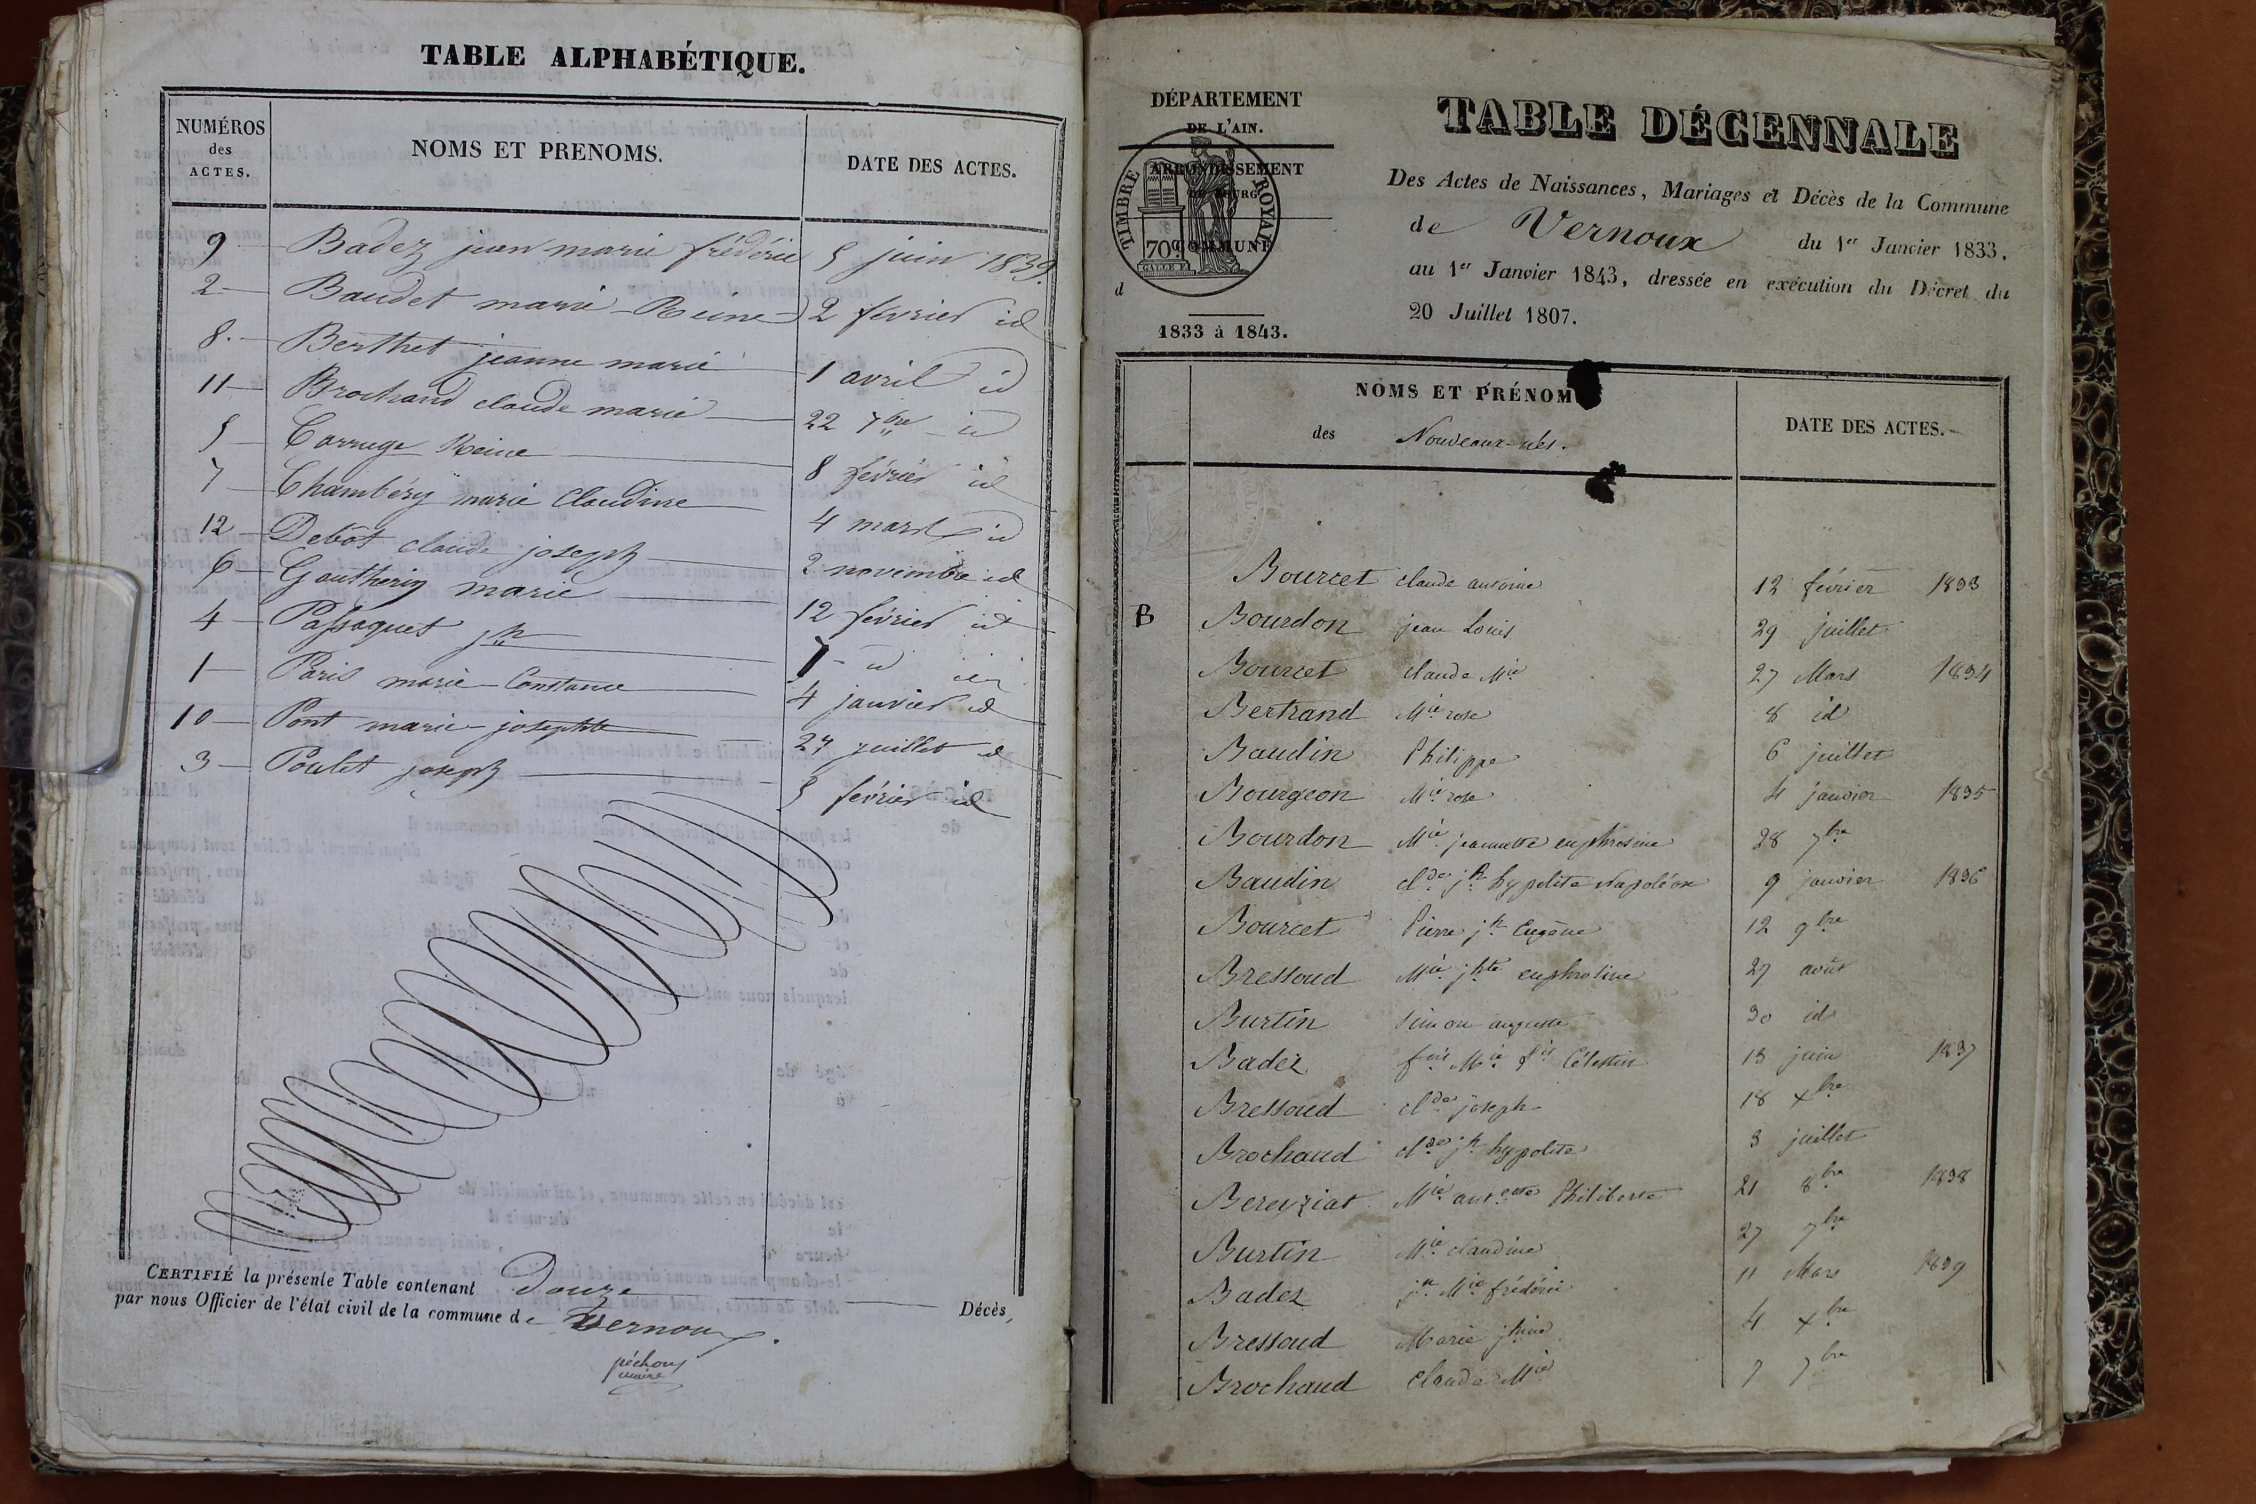 TABLE ALPHABÉTIQUE.
NUMÉROS des ACTES.
NOMS ET PRENOMS.
DATE DES ACTES.
9 Badez jean marie frédéric 5 juin 1839.
2 Baudet marie Reine 2 février id
8. Berthet jeanne marie 1 avril id
11 Brochand claude marie 22 7bre id
5 Carruge Reine 8 février id
7 Chambéry marie Claudine 4 mars id
12 Debôt claude joseph 2 novembre id
6 Gautherin marie 12 février id
4 Passaquet jh 7 id id
1 Paris marie Constance 4 janvier id
10 Pont marie josephte 27 juillet id
3 Poulet joseph 5 février id
CERTIFIÉ la présente Table contenant Douze Décès,
par nous Officier de l'état civil de la commune de Vernoux.
péchoux
maire
DÉPARTEMENT
DE L'AIN.
ARRONDISSEMENT
DE BOURG
COMMUNE
d
TIMBRE ROYAL
70c.
1833 à 1843.
TABLE DÉCENNALE
Des Actes de Naissances, Mariages et Décès de la Commune
de Vernoux du 1er Janvier 1833,
au 1er Janvier 1843, dressée en exécution du Décret du
20 Juillet 1807.
NOMS ET PRÉNOM
des Nouveaux-nés.
DATE DES ACTES.
Bourcet claude antoine 12 février 1833
B Bourdon jean Louis 29 juillet
Bourcet claude Mie 27 Mars 1834
Bertrand Mie rose 8 id
Baudin Philippe 6 juillet
Bourgeon Mie rose 4 janvier 1835
Bourdon Mie jeannette euphrosine 28 7bre
Baudin clde jh hypolite Napoléon 9 janvier 1836
Bourcet Pierre jh Eugène 12 9bre
Bressoud Mie jhte euphrosine 27 août
Burtin Simon auguste 30 id
Badez Mie Célestin 13 juin 1837
Bressoud clde joseph 18 xbre
Brochand clde jh hypolite 3 juillet
Bereyziat Mie antette Philiberte 21 8bre 1838
Burtin Mie claudine 27 7bre
Badez jn Mie frédéric 11 Mars 1839
Bressoud Marie jhine 4 xbre
Brochaud claude Mie 7 7bre